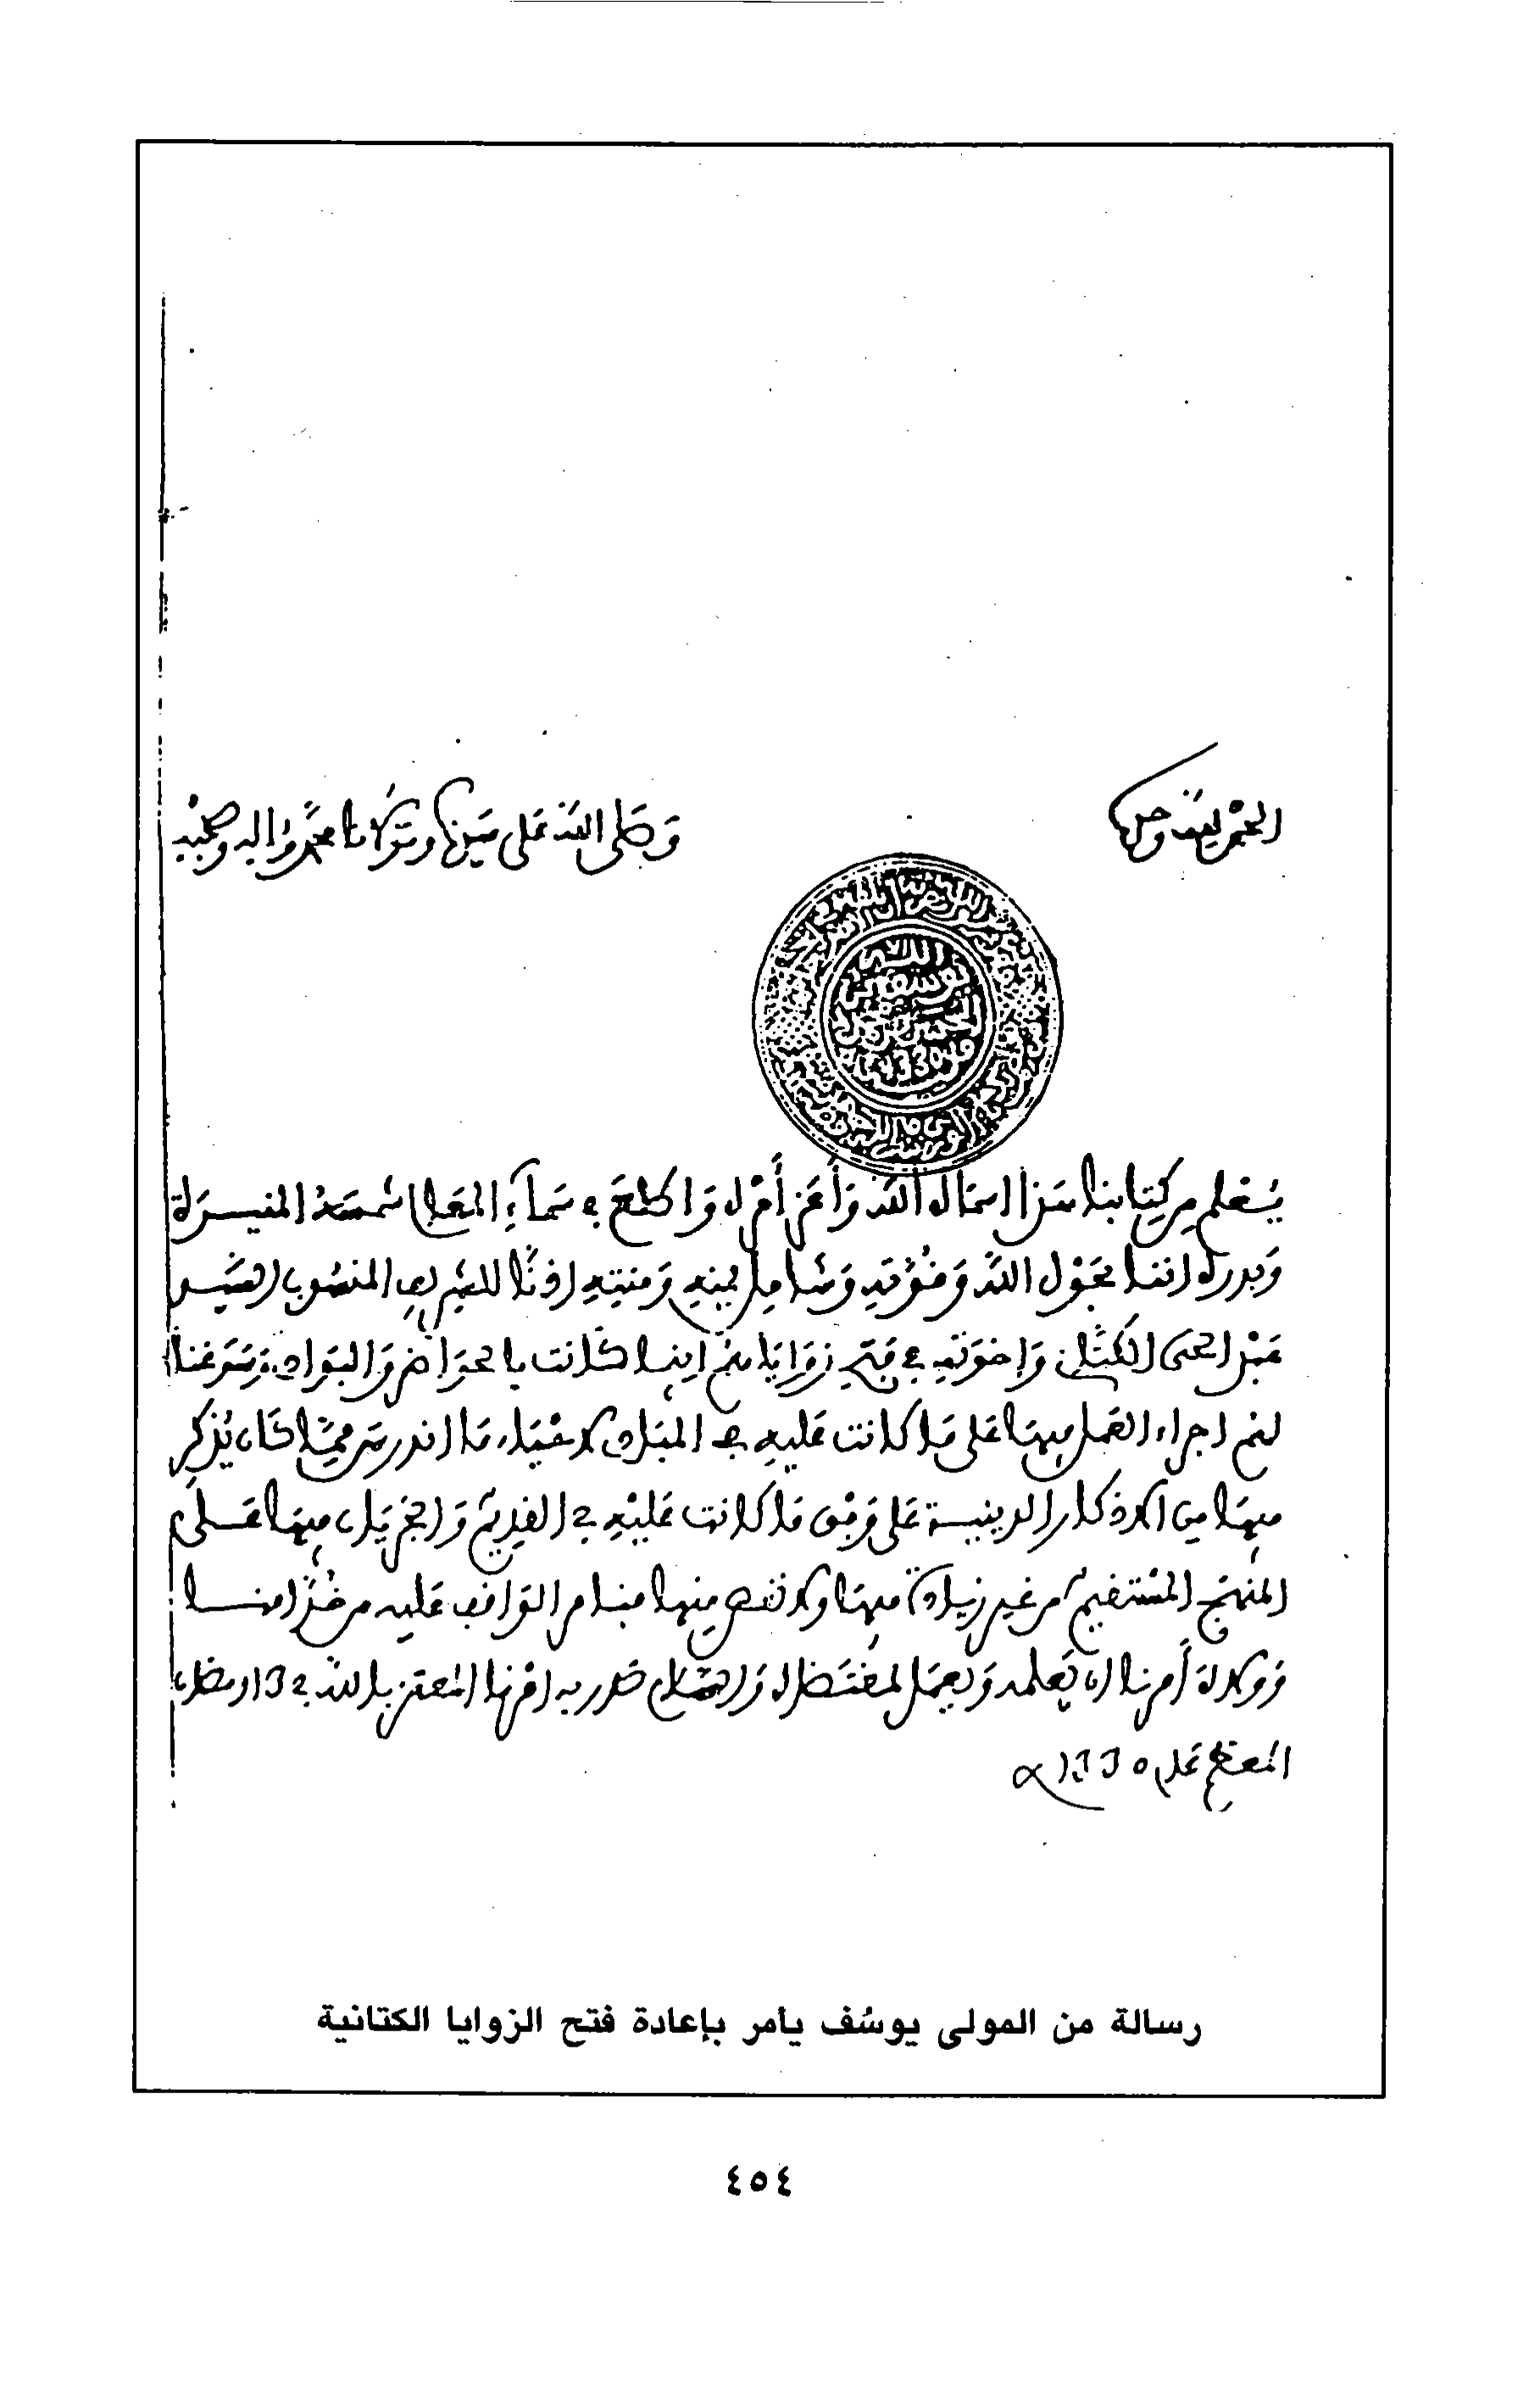 الحمد لله وحده
وصلى الله على سيدنا ومولانا محمد وآله وصحبه
الله
يوسف بن
الحسن
1330
يعلم من كتابنا هذا أسماه الله وأعز أمره وأطلع في سماء المعالي شمسه المنيرة
وبدره أننا بحول الله وقوته وشامل يمنه ومنته أذنا للشريف المنصوب السيد
عبد الحي الكتاني وإخوته في فتح زواياهم أينما كانت بالحواضر والبوادي وسوغنا
لهم إجراء العمل فيها على ما كانت عليه في المبادي لإحياء ما اندرس مما كان يذكر
فيها من الأذكار الدينية على وفق ما كانت عليه في القديم والجريان فيها على
المنهج المستقيم من غير زيادة فيها ولا نقص منها فنأمر الواقف عليه من خدامنا
وولاة أمرنا أن يعلمه ويعمل بمقتضاه والسلام صدر به أمرنا المعتز بالله في 13 رمضان
المعظم عام 1335
رسالة من المولى يوسُف يأمر بإعادة فتح الزوايا الكتانية
٤٥٤